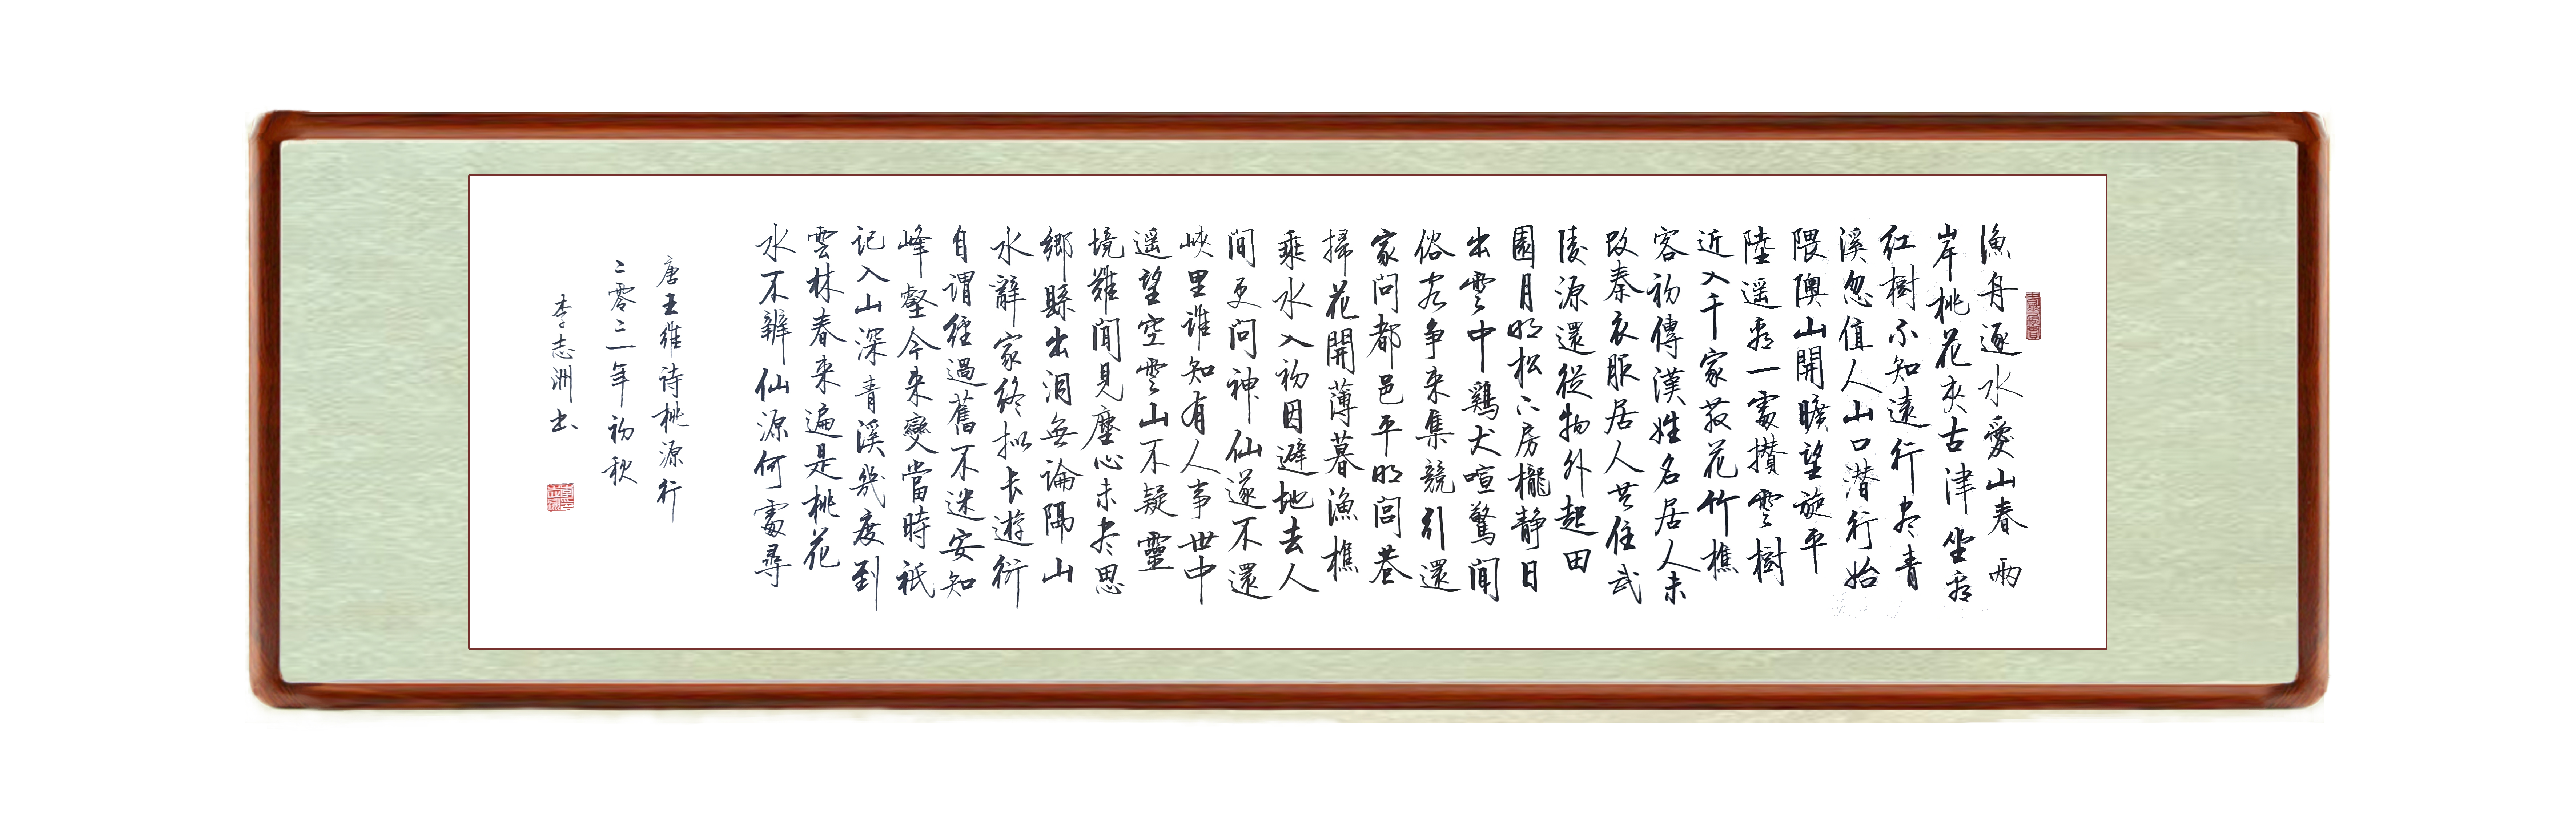 漁舟逐水愛山春兩
岸桃花夾古津坐看
紅樹不知遠行尽青
溪忽值人山口潜行始
隈隩山開曠望旋平
陸遥看一處攢雲樹
近入千家散花竹樵
客初傳漢姓名居人未
改秦衣服居人共住武
陵源還從物外起田
園月明松下房櫳静日
出雲中鷄犬喧驚聞
俗客争来集競引還
家問都邑平明閭巷
掃花開薄暮漁樵
乘水入初因避地去人
间更问神仙遂不還
峡里谁知有人事世中
遥望空雲山不疑靈
境難聞見塵心未尽思
鄉縣出洞無論隔山
水辭家終拟长遊衍
自謂經過舊不迷安知
峰壑今来變當時祇
记入山深青溪幾度到
雲林春来遍是桃花
水不辨仙源何處尋
唐王維诗桃源行
二零二一年初秋
李志洲书